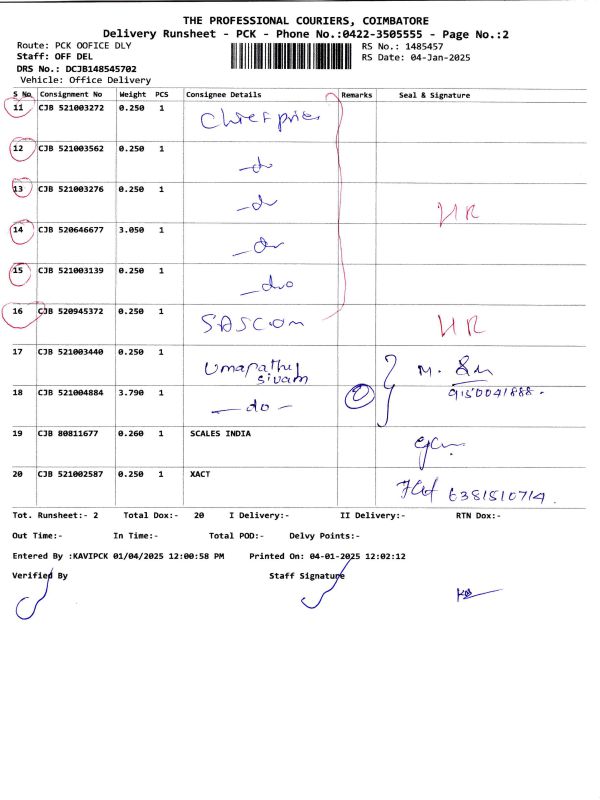 THE PROFESSIONAL COURIERS, COIMBATORE
Delivery Runsheet - PCK - Phone No.:0422-3505555 - Page No.:2
Route: PCK OOFICE DLY RS No.: 1485457
Staff: OFF DEL RS Date: 04-Jan-2025
DRS No.: DCJB148545702
Vehicle: Office Delivery
S No. Consignment No Weight PCS Consignee Details Remarks Seal & Signature
11 CJB 521003272 0.250 1
12 CJB 521003562 0.250 1 -do
13 CJB 521003276 0.250 1 -do UR
14 CJB 520646677 3.050 1 -do
15 CJB 521003139 0.250 1 -do
16 CJB 520945372 0.250 1 SASCOM UR
17 CJB 521003440 0.250 1 Umapathy sivam M.
18 CJB 521004884 3.790 1 -do- 2 9150041888.
19 CJB 80811677 0.260 1 SCALES INDIA
20 CJB 521002587 0.250 1 XACT 6381510714
Tot. Runsheet:- 2 Total Dox:- 20 I Delivery:- II Delivery:- RTN Dox:-
Out Time:- In Time:- Total POD:- Delvy Points:-
Entered By :KAVIPCK 01/04/2025 12:00:58 PM Printed On: 04-01-2025 12:02:12
Verified By Staff Signature